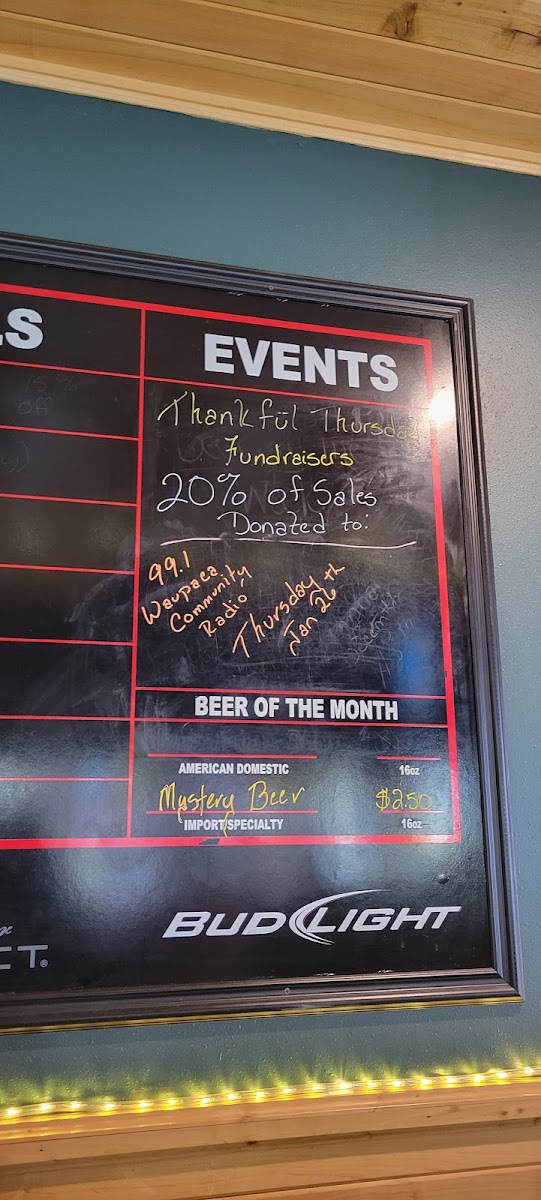 LS
EVENTS
15%
off
Thankful Thursday
Fundraisers
20% of Sales
Donated to:
99.1
Waupaca
Community
Radio
Thursday
Jan 26th
BEER OF THE MONTH
AMERICAN DOMESTIC 16oz
Mystery Beer $2.50
IMPORT/SPECIALTY 16oz
BUD LIGHT
CT®